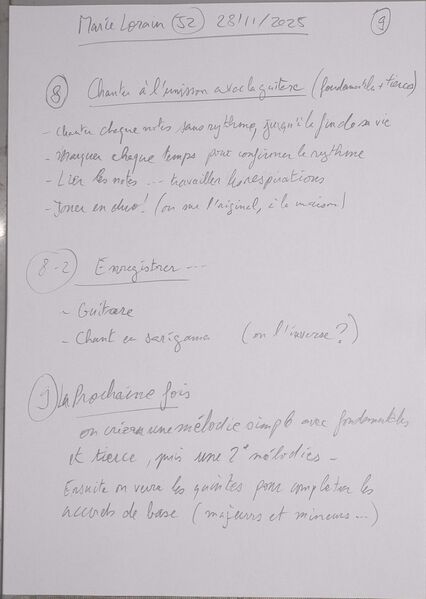 Marie Lorain (52) 28/11/2025 9
8 Chanter à l'unisson avec la guitare (fondamentales + tierces)
- chanter chaque notes sans rythme, jusqu'à la fin de sa vie
- Marquer chaque temps pour confirmer le rythme
- Lier les notes ... travailler les respirations
- Jouer en duo! (ou sur l'original, à la maison)
8-2 Enregistrer ...
- Guitare
- Chant en sarigama (ou l'inverse?)
9) La Prochaine fois
on créera une mélodie simple avec fondamentales
et tierce, puis une 2e mélodies -
Ensuite on verra les quintes pour compléter les
accords de base (majeurs et mineurs ...)